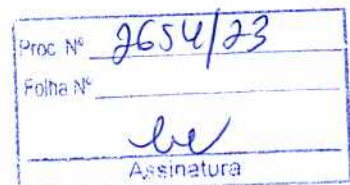 Proc Nº 2654/23
Folha Nº
Assinatura